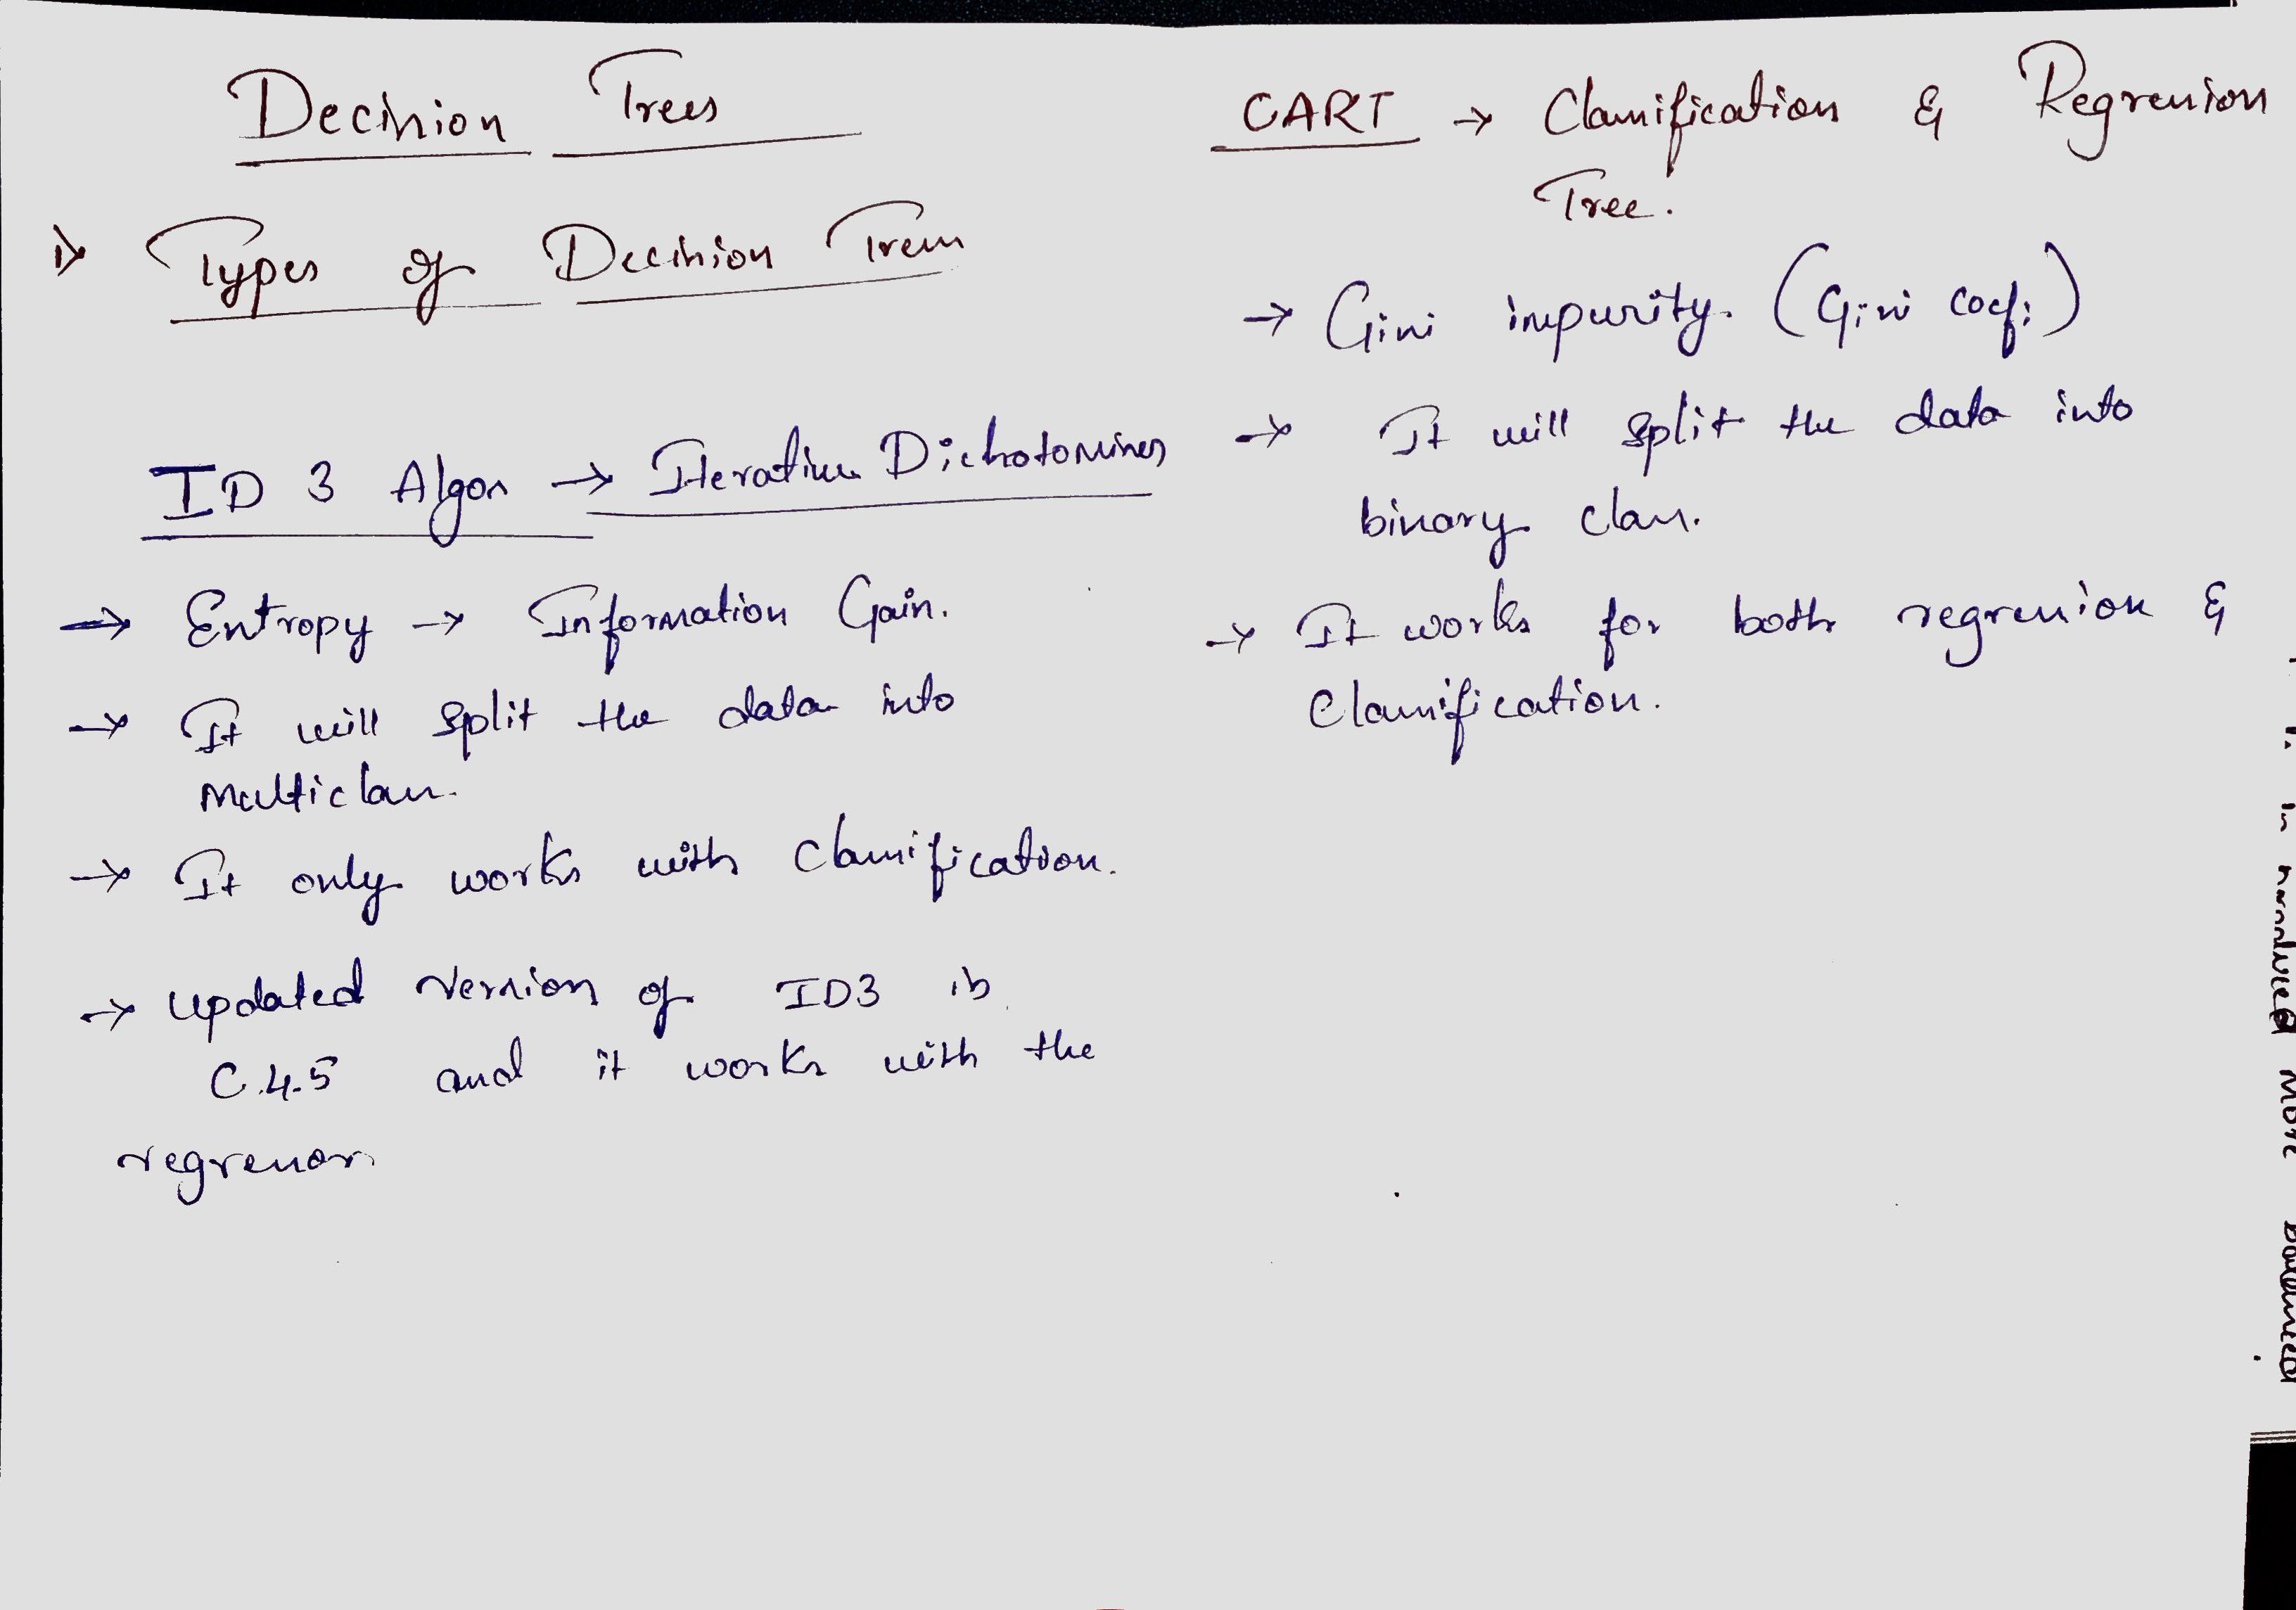 Decision Trees
1) Types of Decision Trees
ID 3 Algor → Iterative Dichotomines
→ Entropy → Information Gain.
→ It will split the data into
multiclass.
→ It only works with classification.
→ updated version of ID3 is
C.4.5 and it works with the
regression
CART → Classification & Regression
Tree.
→ Gini impurity. (Gini coef:)
→ It will split the data into
binary class.
→ It works for both regression &
classification.